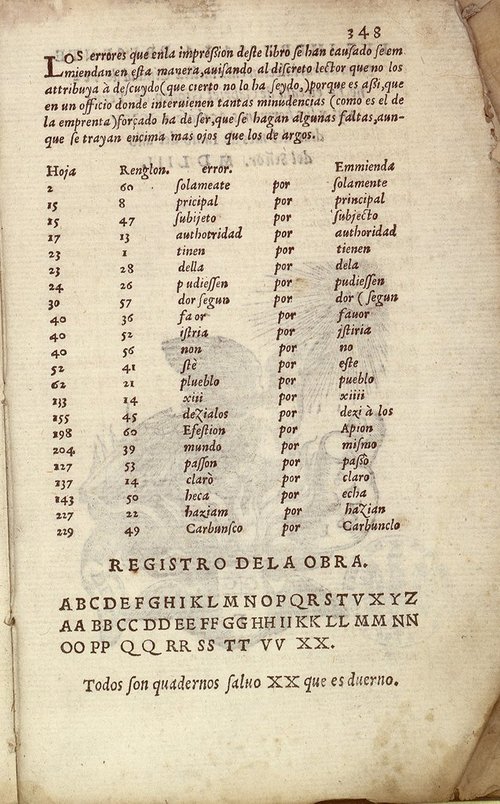 348
LOS errores que enla impreßion deste libro se han causado se em
miendan en esta manera, auisando al discreto lector que no los
attribuya à descuydo (que cierto no lo ha seydo,) porque es aßi, que
en un officio donde interuienen tantas minudencias (como es el de
la emprenta) forçado ha de ser, que se hagan algunas faltas, aun-
que se trayan encima mas ojos que los de argos.
Hoja Renglon. error. Emmienda
2 60 solameate por solamente
15 8 pricipal por principal
15 47 subijeto por subjecto
17 13 authotridad por authoridad
23 1 tinen por tienen
23 28 della por dela
24 26 p udiessen por pudiessen
30 57 dor segun por dor (segun
40 36 fa or por fauor
40 52 istria por jstiria
40 56 non por no
52 41 stè por este
62 21 plueblo por pueblo
133 14 xiii por xiiii
155 45 deZialos por dezi à los
198 60 Efestion por Apion
204 39 mundo por mismo
127 53 passon por passò
137 14 claro por claro
143 50 heca por echa
227 22 haziam por haZian
229 49 Carbunsco por Carbunclo
REGISTRO DELA OBRA.
A B C D E F G H I K L M N O P Q R S T V X Y Z
AA BB CC DD EE FF GG HH II KK LL MM NN
OO PP QQ RR SS TT VV XX.
Todos son quadernos saluo XX que es duerno.